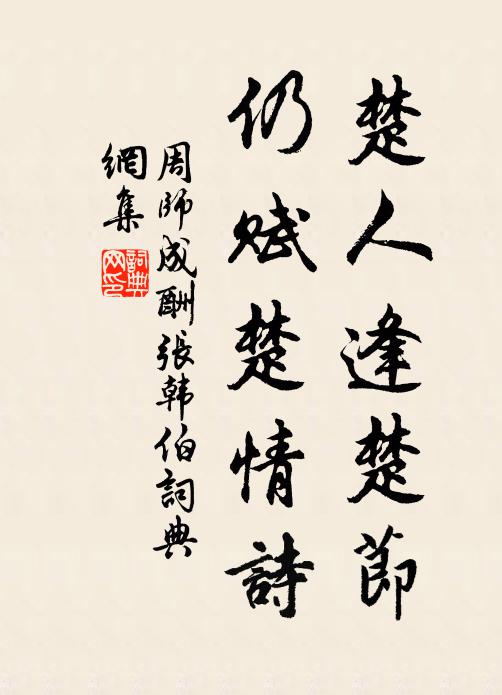 楚人逢楚節
仍賦楚情詩
周師成酬張韩伯詞典
網集
詞典
网印